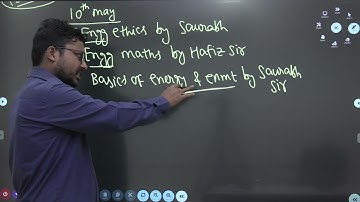 10th may
Engg ethics by Saurabh
Engg maths by Hafiz Sir
Basics of energy & enmt by Saurabh
Sir